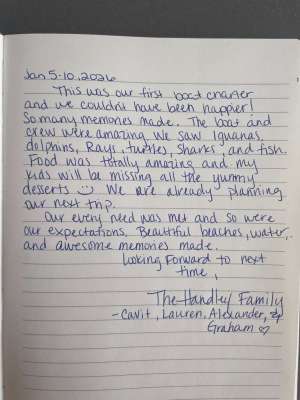 Jan 5-10, 2026
This was our first boat charter
and we couldn't have been happier!
So many memories made. The boat and
crew were amazing. We saw Iguanas,
dolphins, Rays, turtles, sharks, and fish.
Food was totally amazing and my
kids will be missing all the yummy
desserts :) We are already planning
our next trip.
Our every need was met and so were
our expectations. Beautiful beaches, water,
and awesome memories made.
Looking forward to next
time,
The Handley Family
- Cavit, Lauren, Alexander, &
Graham ♡